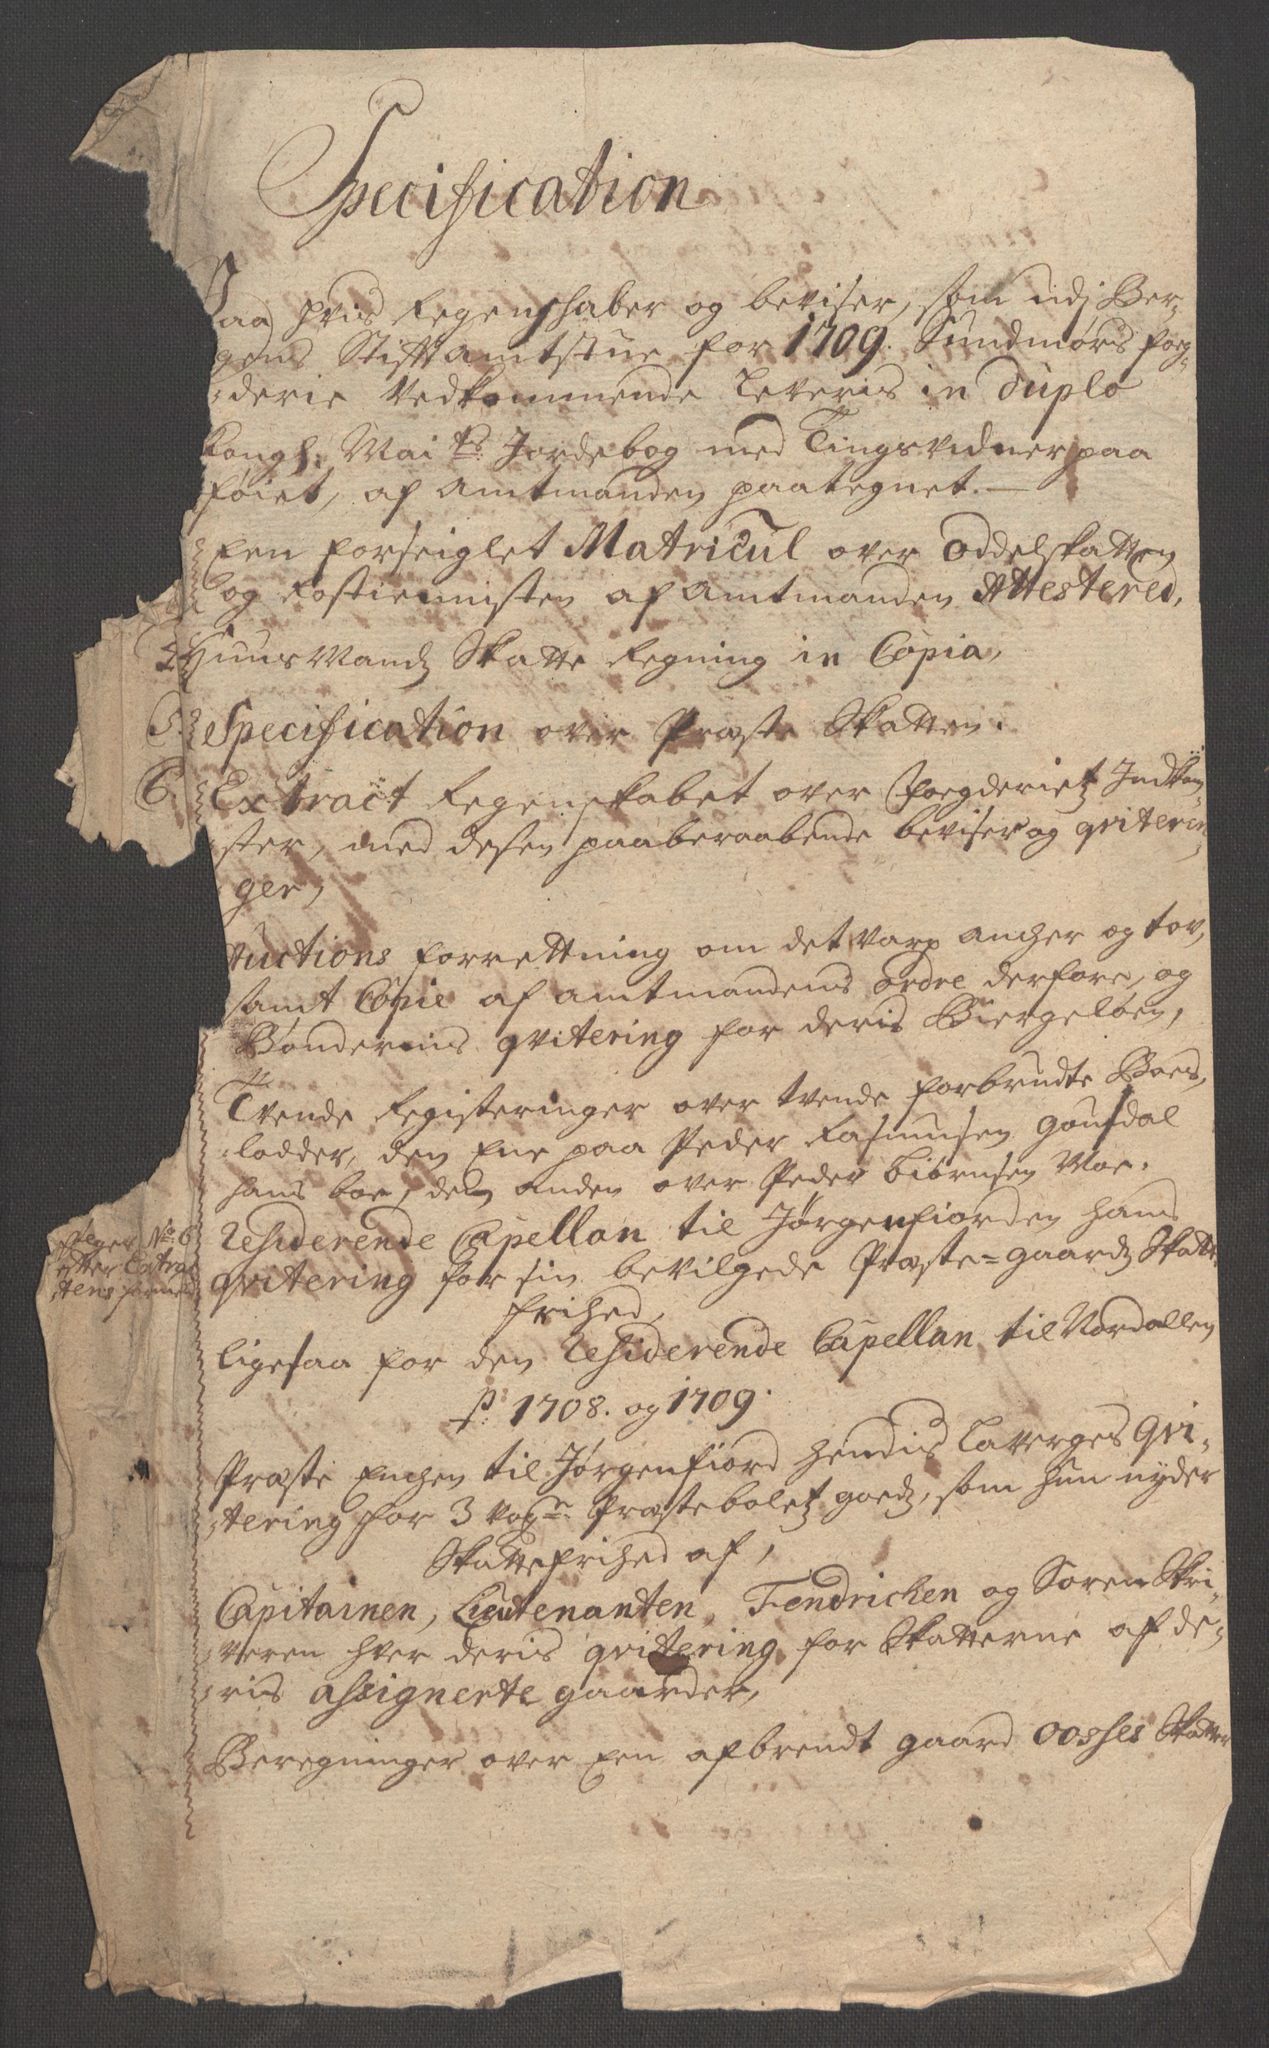 Specification
Paa hvis Regenshaber og beviser, som udj Ber-
gens Stiftamtstue for 1709. Sundmørs fog-
derie Vedkommende Leveris in duplo
Kongl: Mai ts: Jordebog med Tingsvidner paa
føiet, af Amtmanden paategnet.
Een forseiglet Matricul over Oddelskatten
og Rostienisten af Amtmanden Attestered,
Huusmandz Skatte Regning in Copia,
5. Specification over Præste Skatten.
6. Extract Regenskabet over Foegderietz Indkom-
ster, med desen paaberaabende beviser og qviterin-
ger,
Auctions forrettning om det Varp ancher og tov,
samt Copie af amtmandens ordre derfore, og
Bøndernis qvitering for deris Biergeløen,
Tvende Registeringer over tvende forbrudte Boes,
lodder, den Ene paa Peder Rasmusen
hans boe, den anden over Peder Biørnsen Moe.
følger No 6
efter Extrac
tens formeld
Residerende Capellan til Jørgenfiorden hans
qvitering for sin bevilgede Præste-gaardz Skatte
frihed,
ligesaa for den Residerende Capellan til Nordallen
p: 1708. og 1709.
Præste Enchen til Jørgenfiord hendis Laverges qvi-
tering for 3 Præsteboletz goedz, som hun nyder
Skattefrihed af,
Capitainen, Lieutenanten, Fendrichen og Sorenskri-
veren hver deris qvitering for Skatterne af de-
ris assignerte gaarder,
Beregninger over Een afbrendt gaard Ooshes Skatter